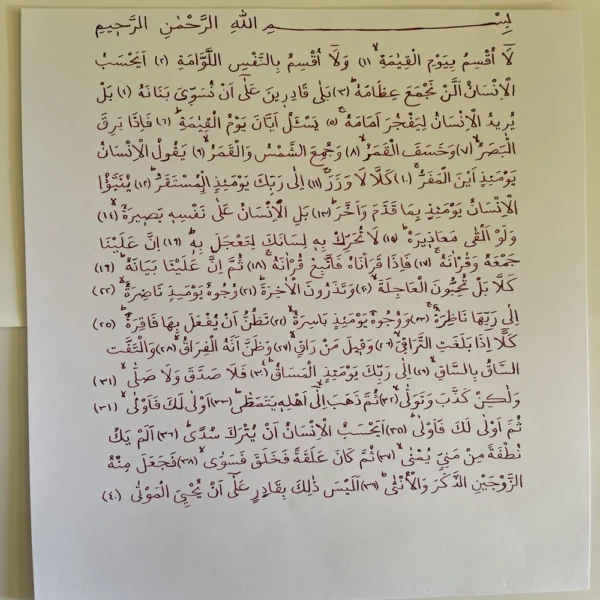 بِسْــــــــــــمِ اللهِ الرَّحْمٰنِ الرَّحِيمِ
لَٓا أُقْسِمُ بِيَوْمِ الْقِيٰمَةِۙ (١) وَلَٓا أُقْسِمُ بِالنَّفْسِ اللَّوَّامَةِ (٢) اَيَحْسَبُ
الْاِنْسَانُ اَلَّنْ نَجْمَعَ عِظَامَهُۜ (٣) بَلٰى قَادِرِينَ عَلٰٓى اَنْ نُسَوِّىَ بَنَانَهُ (٤) بَلْ
يُرِيدُ الْاِنْسَانُ لِيَفْجُرَ اَمَامَهُۚ (٥) يَسْـَٔلُ اَيَّانَ يَوْمُ الْقِيٰمَةِۜ (٦) فَاِذَا بَرِقَ
الْبَصَرُۙ (٧) وَخَسَفَ الْقَمَرُۙ (٨) وَجُمِعَ الشَّمْسُ وَالْقَمَرُۙ (٩) يَقُولُ الْاِنْسَانُ
يَوْمَئِذٍ اَيْنَ الْمَفَرُّۚ (١٠) كَلَّا لَا وَزَرَۜ (١١) اِلٰى رَبِّكَ يَوْمَئِذٍ الْمُسْتَقَرُّۜ (١٢) يُنَبَّؤُا
الْاِنْسَانُ يَوْمَئِذٍ بِمَا قَدَّمَ وَاَخَّرَۜ (١٣) بَلِ الْاِنْسَانُ عَلٰى نَفْسِهِ بَصِيرَةٌۙ (١٤)
وَلَوْ اَلْقٰى مَعَاذِيرَهُۜ (١٥) لَا تُحَرِّكْ بِهِ لِسَانَكَ لِتَعْجَلَ بِهِۜ (١٦) اِنَّ عَلَيْنَا
جَمْعَهُ وَقُرْاٰنَهُۚ (١٧) فَاِذَا قَرَأْنَاهُ فَاتَّبِعْ قُرْاٰنَهُۚ (١٨) ثُمَّ اِنَّ عَلَيْنَا بَيَانَهُۜ (١٩)
كَلَّا بَلْ تُحِبُّونَ الْعَاجِلَةَۙ (٢٠) وَتَذَرُونَ الْاٰخِرَةَۜ (٢١) وُجُوهٌ يَوْمَئِذٍ نَاضِرَةٌۙ (٢٢)
اِلٰى رَبِّهَا نَاظِرَةٌۚ (٢٣) وَوُجُوهٌ يَوْمَئِذٍ بَاسِرَةٌۙ (٢٤) تَظُنُّ اَنْ يُفْعَلَ بِهَا فَاقِرَةٌۜ (٢٥)
كَلَّٓا اِذَا بَلَغَتِ التَّرَاقِيَۙ (٢٦) وَقِيلَ مَنْ رَاقٍۙ (٢٧) وَظَنَّ اَنَّهُ الْفِرَاقُۙ (٢٨) وَالْتَفَّتِ
السَّاقُ بِالسَّاقِۙ (٢٩) اِلٰى رَبِّكَ يَوْمَئِذٍ الْمَسَاقُۜ (٣٠) فَلَا صَدَّقَ وَلَا صَلّٰىۙ (٣١)
وَلٰكِنْ كَذَّبَ وَتَوَلّٰىۙ (٣٢) ثُمَّ ذَهَبَ اِلٰٓى اَهْلِهِ يَتَمَطّٰىۜ (٣٣) اَوْلٰى لَكَ فَاَوْلٰىۙ (٣٤)
ثُمَّ اَوْلٰى لَكَ فَاَوْلٰىۜ (٣٥) اَيَحْسَبُ الْاِنْسَانُ اَنْ يُتْرَكَ سُدًىۜ (٣٦) اَلَمْ يَكُ
نُطْفَةً مِنْ مَنِيٍّ يُمْنٰىۙ (٣٧) ثُمَّ كَانَ عَلَقَةً فَخَلَقَ فَسَوّٰىۙ (٣٨) فَجَعَلَ مِنْهُ
الزَّوْجَيْنِ الذَّكَرَ وَالْاُنْثٰىۜ (٣٩) اَلَيْسَ ذٰلِكَ بِقَادِرٍ عَلٰٓى اَنْ يُحْيِىَ الْمَوْتٰى (٤٠)